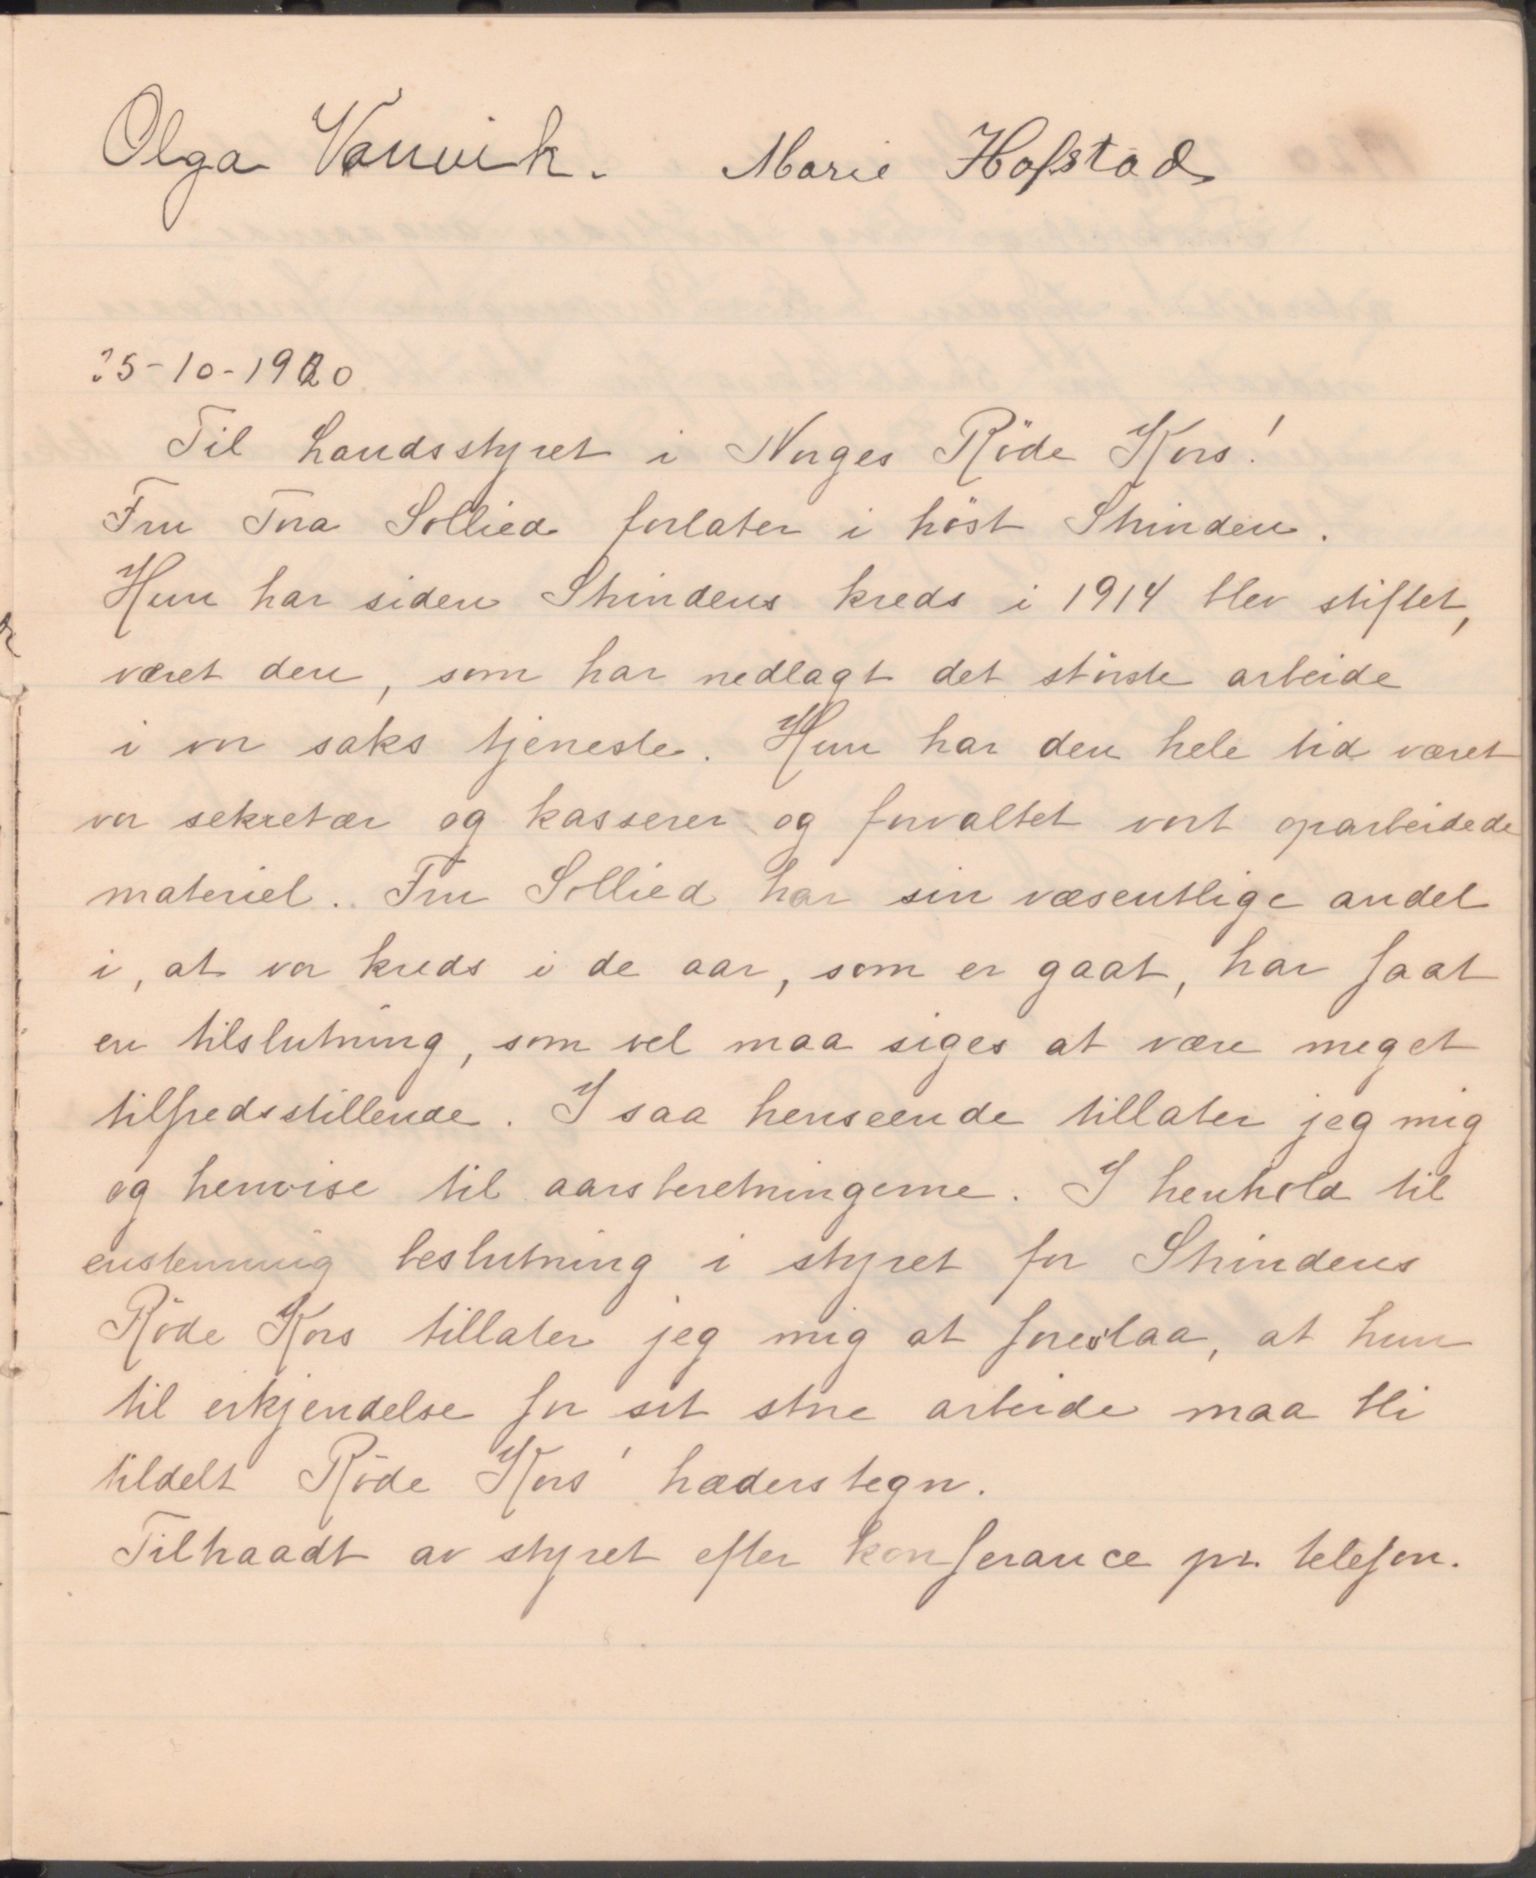 Olga Vanvik. Marie Hofstad
25-10-1920
Til Landsstyret i Norges Röde Kors!
Fru Tora Sollied forlater i höst Strinden.
Hun har siden Strindens kreds i 1914 blev stiftet,
været den, som har nedlagt det störste arbeide
i vor saks tjeneste. Hun har den hele tid været
vor sekretær og kasserer og forvaltet vort oparbeidede
materiel. Fru Sollied har sin væsentlige andel
i, at vor kreds i de aar, som er gaat, har faat
en tilslutning, som vel maa siges at være meget
tilfredsstillende. I saa henseende tillater jeg mig
og henvise til aarsberetningerne. I henhold til
enstemmig beslutning i styret for Strindens
Röde Kors tillater jeg mig at foreslaa, at hun
til erkjendelse for sit store arbeide maa bli
tildelt Röde Kors' hæderstegn.
Tilraadt av styret efter konferance pr. telefon.